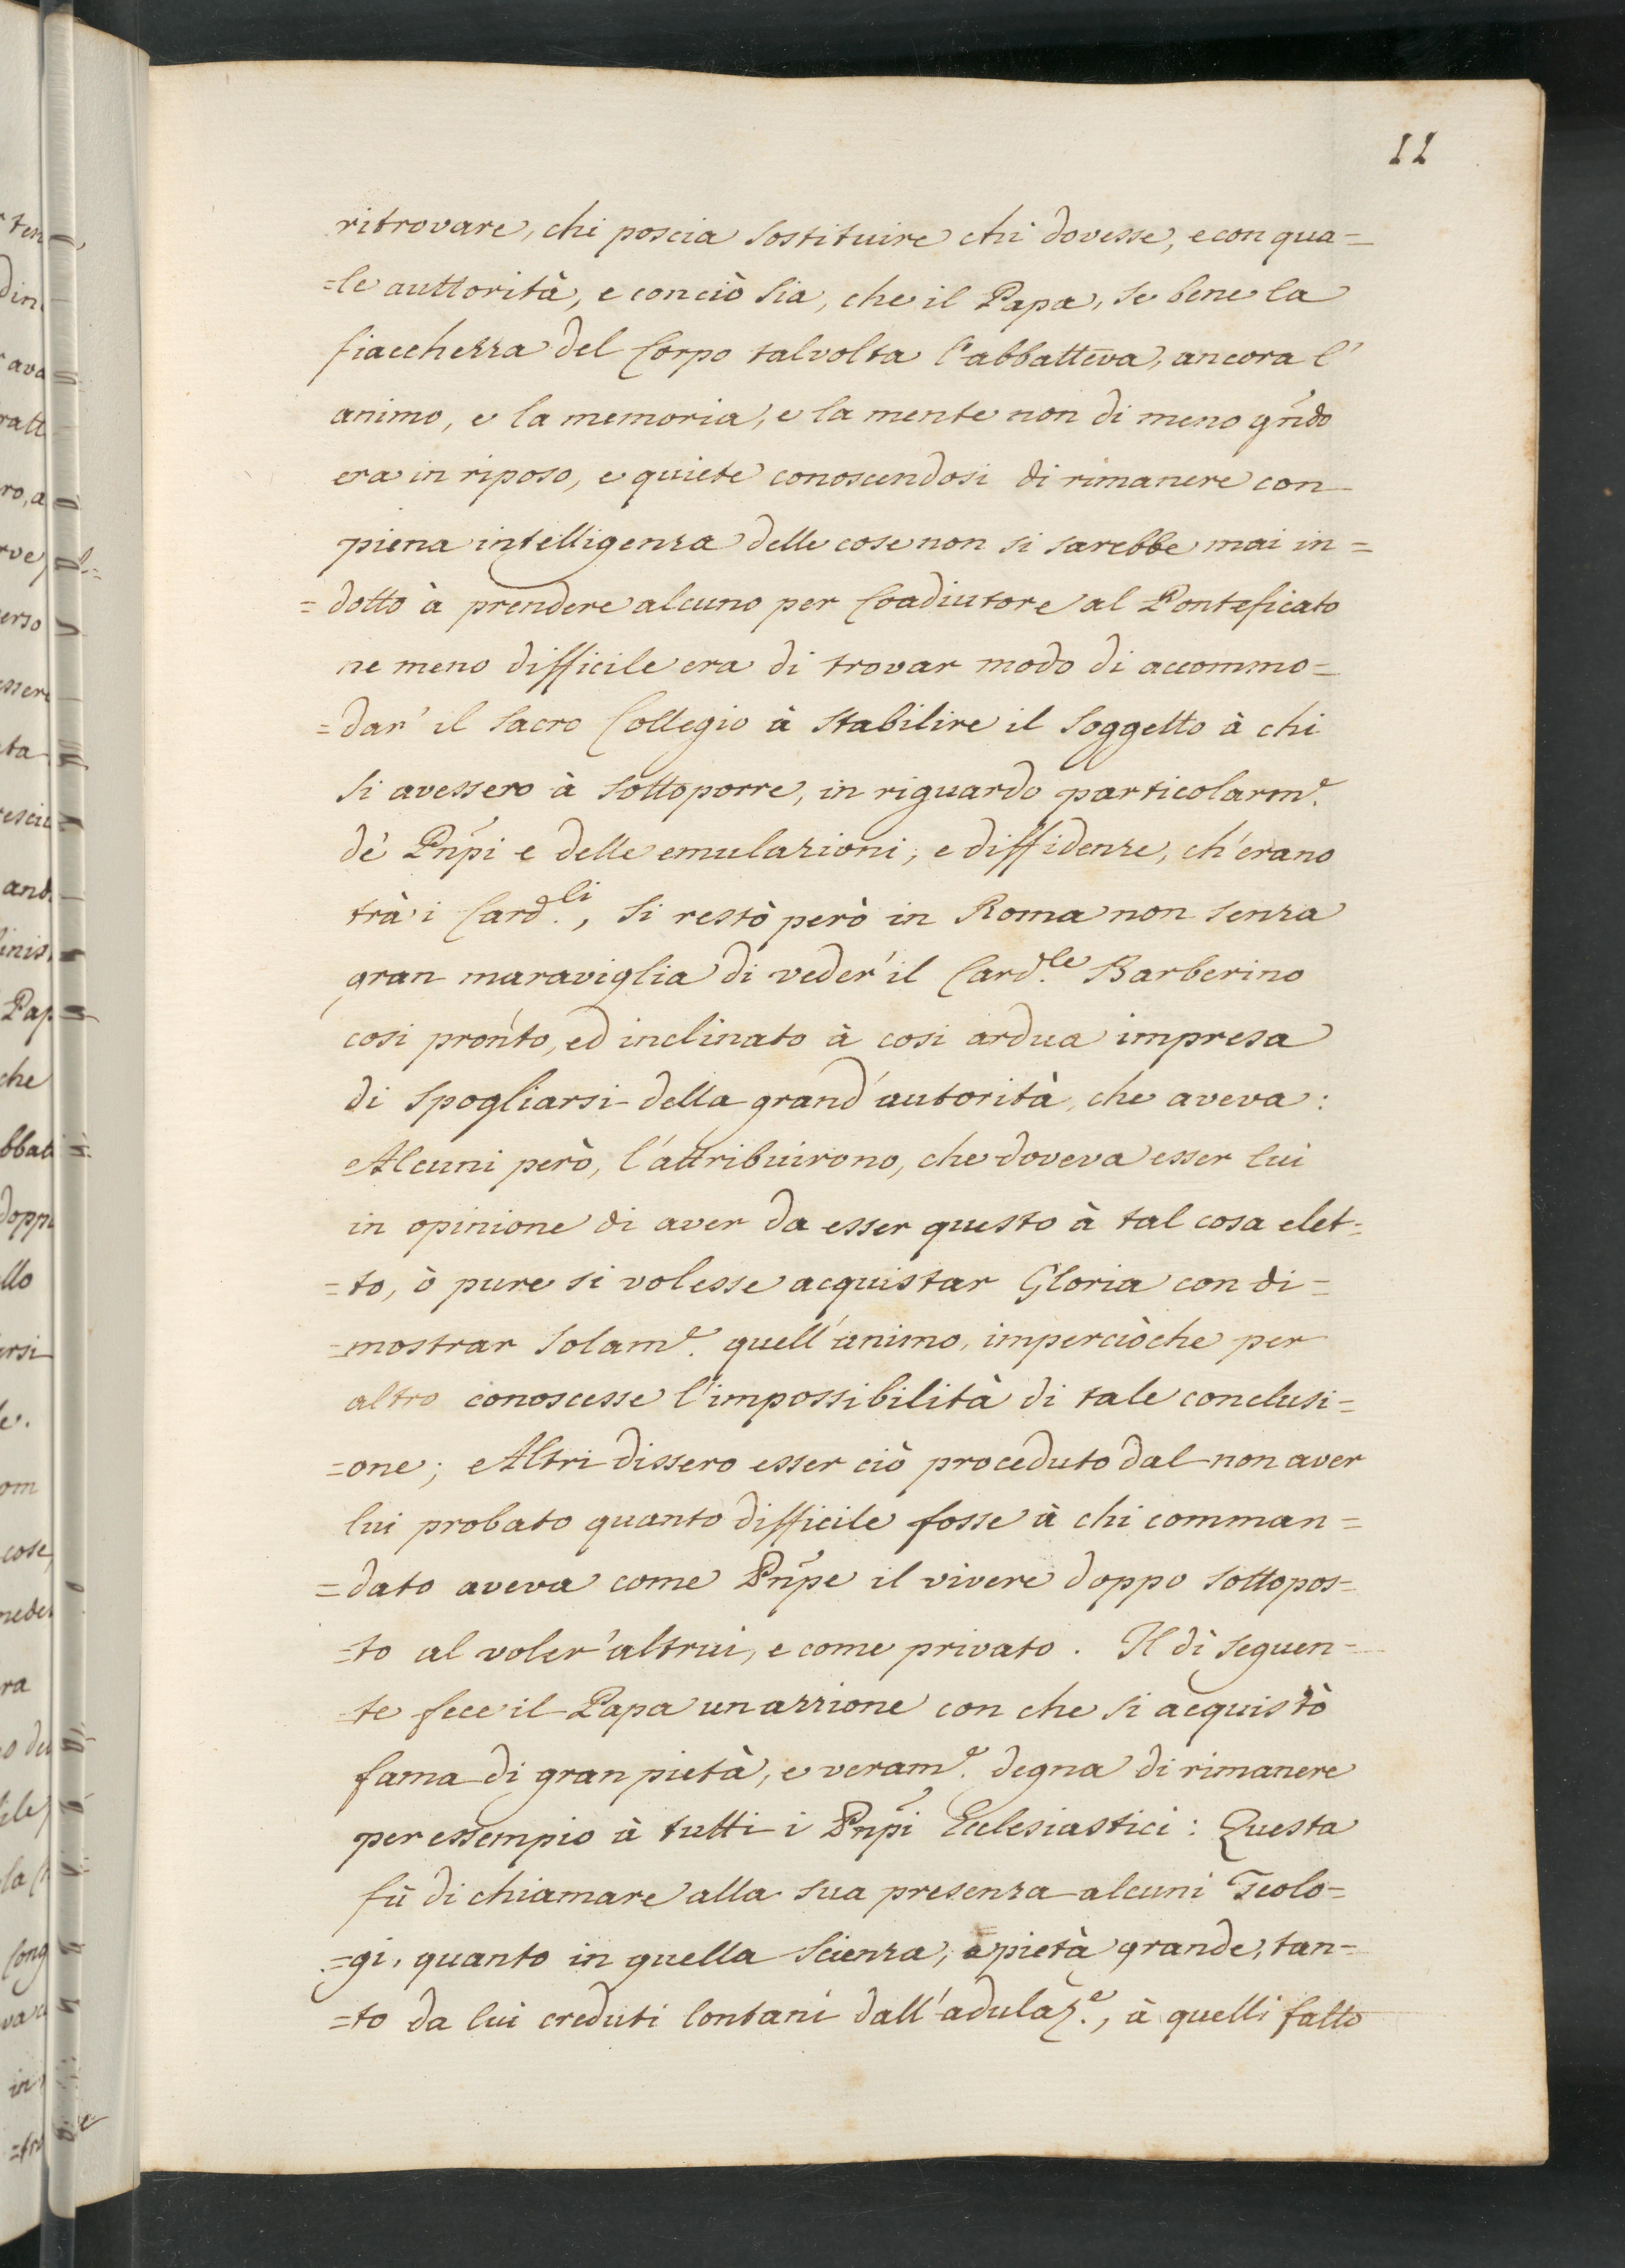 11
ritrovare, chi poscia sostituire chi dovesse, e con qua=
=le auttorità, e conciò sia, che il Papa, se bene la
fiacchezza del Corpo talvolta l'abbatteva, ancora l'
animo, e la memoria, e la mente non di meno qñdo
era in riposo, e quiete conoscendosi di rimanere con
piena intelligenza delle cose non si sarebbe mai in=
=dotto à prendere alcuno per Coadiutore al Ponteficato
ne meno difficile era di trovar modo di accommo=
=dar' il Sacro Collegio à stabilire il soggetto à chi
si avessero à sottoporre, in riguardo particolarm.e
dè Pñpi e delle emulazioni, e diffidenze, ch'erano
trà i Card.li, si restò però in Roma non senza
gran maraviglia di veder' il Card.le Barberino
cosi pronto, ed inclinato à cosi ardua impresa
di spogliarsi della grand'autorità, che aveva:
Alcuni però, l'attribuirono, che doveva esser lui
in opinione di aver da esser questo à tal cosa elet=
=to, ò pure si volesse acquistar Gloria con di=
=mostrar solam.e quell'animo, imperciòche per
altro conoscesse l'impossibilità di tale conclusi=
=one; Altri dissero esser ciò proceduto dal non aver
lui probato quanto difficile fosse à chi comman=
=dato aveva come Pñpe il vivere doppo sottopos=
=to al voler'altrui, e come privato. Il dì seguen=
te fece il Papa un azzione con che si acquistò
fama di gran pietà, e veram.e degna di rimanere
per essempio à tutti i Pñpi Ecclesiastici: Questa
fù di chiamare alla sua presenza alcuni Teolo=
=gi, quanto in quella Scienza, e pietà grande, tan=
=to da lui creduti lontani dall'adulaz.e, à quelli fatto